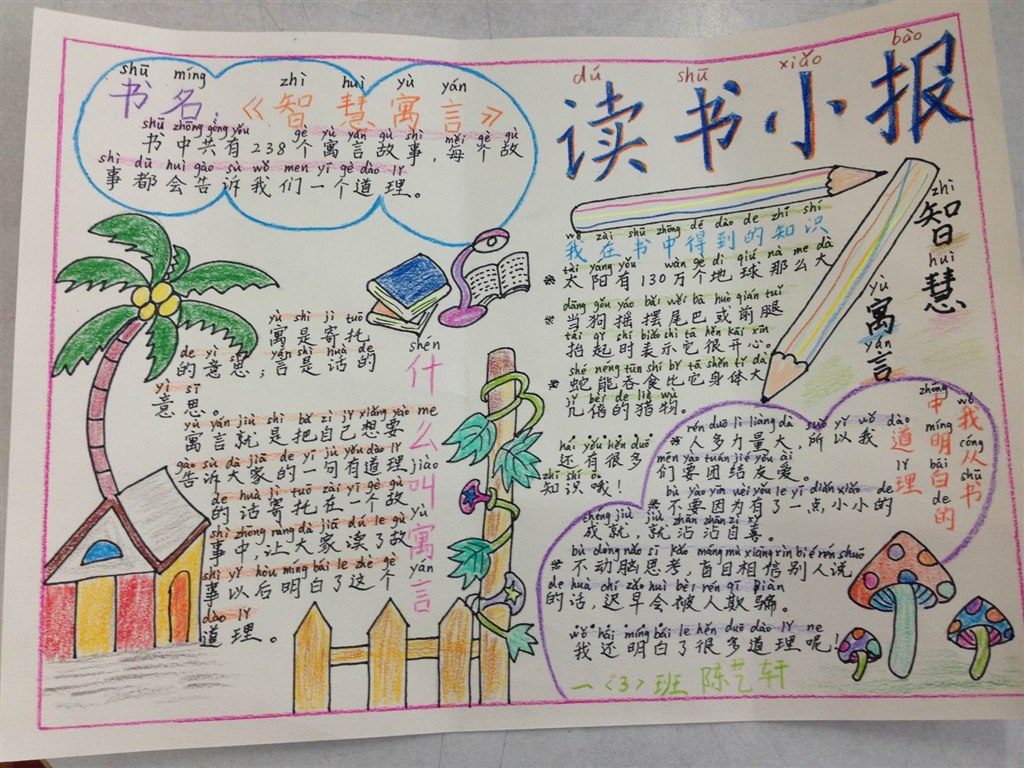 dú shū xiǎo bào
读书小报
shū míng zhì huì yù yán
书名：《智慧寓言》
shū zhōng gòng yǒu gè yù yán gù shì měi gè gù
书中共有238个寓言故事，每个故
shì dū huì gào sù wǒ men yī gè dào lǐ
事都会告诉我们一个道理。
shén me jiào yù yán
什么叫寓言
yù shì jì tuō
寓是寄托
de yì sī yán shì huà de
的意思；言是话的
yì sī
意思。
yù yán jiù shì bǎ zì jǐ xiǎng yào
寓言就是把自己想要
gào sù dà jiā de yī jù yǒu dào lǐ
告诉大家的一句有道理
de huà jì tuō zài yī gè gù
的话寄托在一个故
shì zhōng ràng dà jiā dú le gù
事中，让大家读了故
shì yǐ hòu míng bái le zhè gè
事以后明白了这个
dào lǐ
道理。
zhì huì yù yán
智慧寓言
wǒ zài shū zhōng dé dào de zhī shí
我在书中得到的知识
tài yáng yǒu wàn gè dì qiú nà me dà
*太阳有130万个地球那么大
dāng gǒu yáo bǎi wěi bā huò qián tuǐ
*当狗摇摆尾巴或前腿
tái qǐ shí biǎo shì tā hěn kāi xīn
抬起时表示它很开心。
shé néng tūn shí bǐ tā shēn tǐ dà
*蛇能吞食比它身体大
jǐ bèi de liè wù
几倍的猎物。
hái yǒu hěn duō
还有很多
zhī shí ó
知识哦！
wǒ cóng shū
我从书
zhōng míng bái de
中明白的
dào lǐ
道理
rén duō lì liàng dà suǒ yǐ wǒ
*人多力量大，所以我
men yào tuán jié yǒu ài
们要团结友爱。
bù yào yīn wèi yǒu le yī diǎn xiǎo de
*不要因为有了一点小小的
chéng jiù jiù zhān zhān zì xǐ
成就，就沾沾自喜。
bù dòng nǎo sī kǎo máng mù xiāng xìn bié rén shuō
*不动脑思考，盲目相信别人说
de huà chí zǎo huì bèi rén qī piàn
的话，迟早会被人欺骗。
wǒ hái míng bái le hěn duō dào lǐ ne
我还明白了很多道理呢！
一〈3〉班 陈艺轩